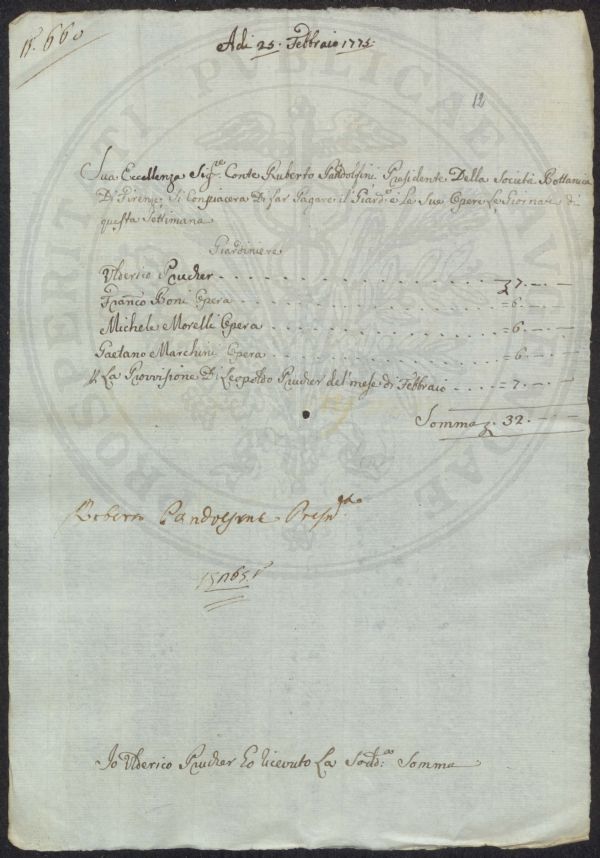 N. 660
Adi 25. Febbraio 1775.
12
Sua Eccellenza Sig:re Conte Ruberto Pandolfini Presidente Della Società Bottanica
Di Firenze, Si Conpiacera Di far Pagare il Giard:e e La Sua Opere Le Giornate di
questa Settimana
Giardiniere
Ulderico Prucker . . . . . . . . . . . . . . . . 7. — —
Franco Boni Opera . . . . . . . . . . . . . . . = 6. — —
Michele Morelli Opera . . . . . . . . . . . . . = 6. — —
Gaetano Marchini Opera . . . . . . . . . . . . = 6. — —
La Provisione Di Leopoldo Prucker del mese di Febbraio . . . . = 7. — —
Somma 32. — —
Roberto Pandolfini Presid:te
Io Ulderico Prucker ho ricevuto La Sodd:a Somma
PROSPERITATI PVBLICAE AVGENDAE